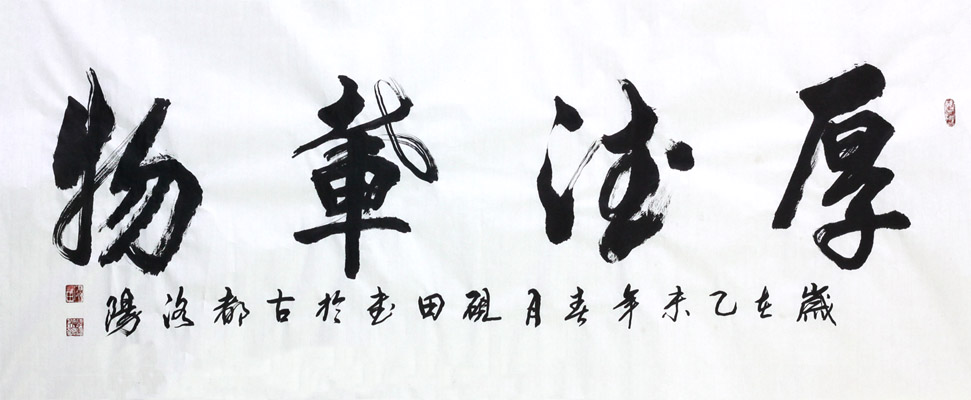 厚德載物
歲在乙未年春月硯田書於古都洛陽